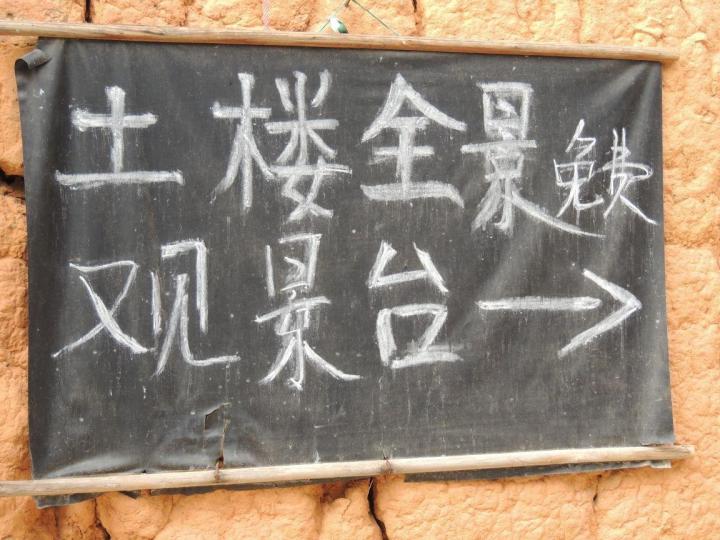 土楼全景免费
观景台→